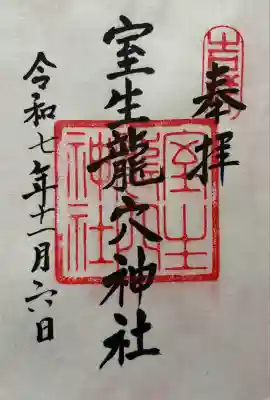 奉拝
室生龍穴神社
令和七年十一月六日
室生
龍穴
神社